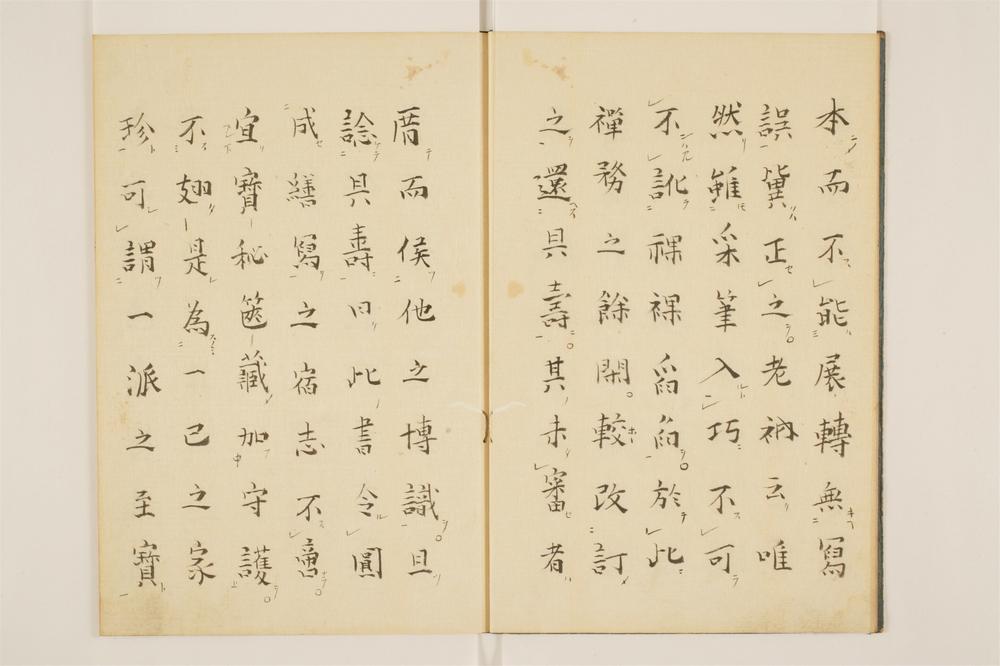 本而不能展轉無寫
誤冀正之老衲云唯
然雖采筆入巧不可
不訛裸裸於此
禪務之餘閑較改訂
之還具壽其未審者
厝而俟他之博識且
諗具壽曰此書令圓
成繕寫之宿志不啻
宜寶秘篋藏加守護
不翅是為一己之家
珍可謂一派之至寶